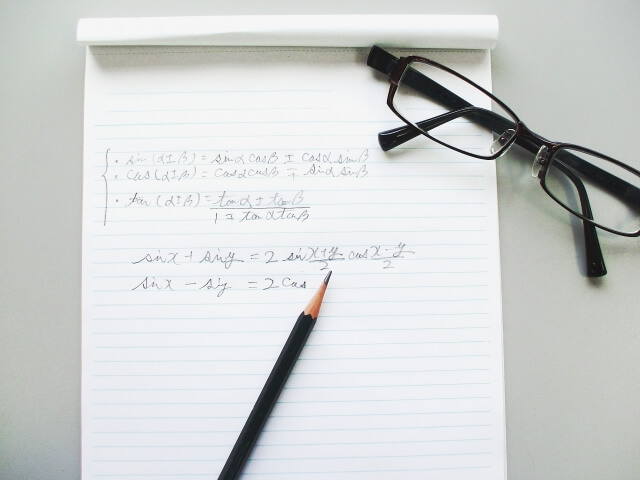 · sin (α±β) = sinα cosβ ± cosα sinβ
· cos (α±β) = cosα cosβ ∓ sinα sinβ
· tan (α±β) = tanα ± tanβ / 1 ∓ tanα tanβ
sinx + siny = 2 sin x+y/2 cos x-y/2
sinx - siy = 2 cos